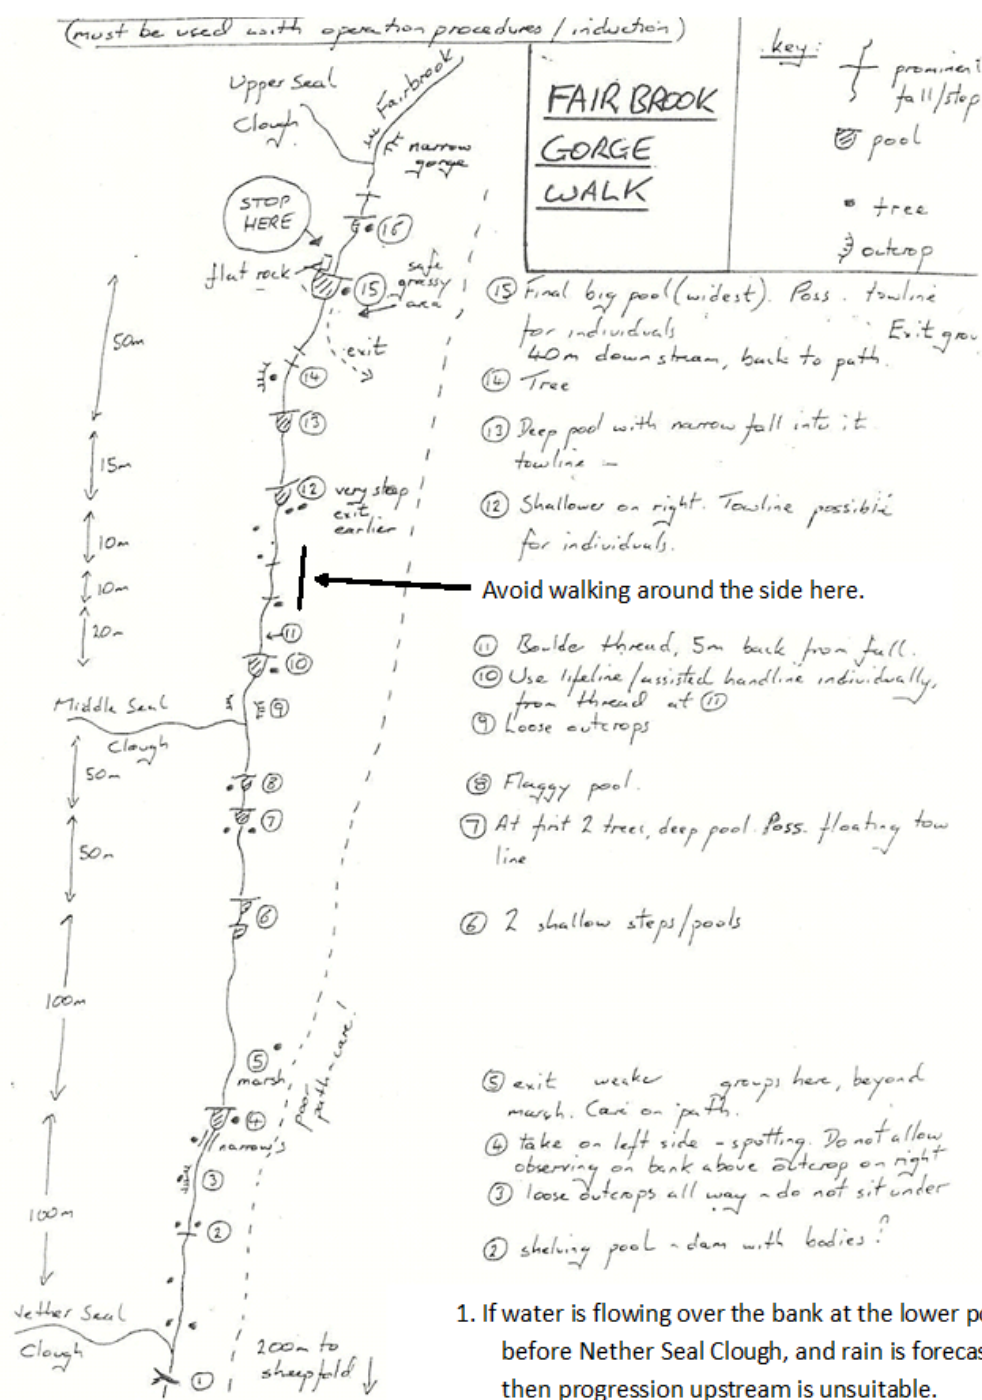 (must be used with operation procedures / induction)
FAIRBROOK
GORGE
WALK
key:
prominent
fall/step
pool
tree
outcrop
Upper Seal
Clough
Fairbrook
narrow
gorge
STOP
HERE
16
flat rock
15
safe
grassy
area
exit
50m
14
13
15m
12 very steep
exit
earlier
10m
10m
20m
11
10
Middle Seal
Clough
9
50m
8
7
50m
6
100m
5
marsh
poor
path - care!
4
narrow's
3
100m
2
Nether Seal
Clough
1
200m to
sheepfold
15 Final big pool (widest). Poss. towline
for individuals Exit grou
40m down stream, back to path.
14 Tree
13 Deep pool with narrow fall into it
towline -
12 Shallower on right. Towline possible
for individuals.
Avoid walking around the side here.
11 Boulder thread, 5m back from fall.
10 Use lifeline/assisted handline individually,
from thread at 11
9 Loose outcrops
8 Flaggy pool.
7 At first 2 trees, deep pool. Poss. floating tow
line
6 2 shallow steps/pools
5 exit weaker groups here, beyond
marsh. Care on path.
4 take on left side - spotting. Do not allow
observing on bank above outcrop on right
3 loose outcrops all way - do not sit under
2 shelving pool - dam with bodies?
1. If water is flowing over the bank at the lower po
before Nether Seal Clough, and rain is forecas
then progression upstream is unsuitable.